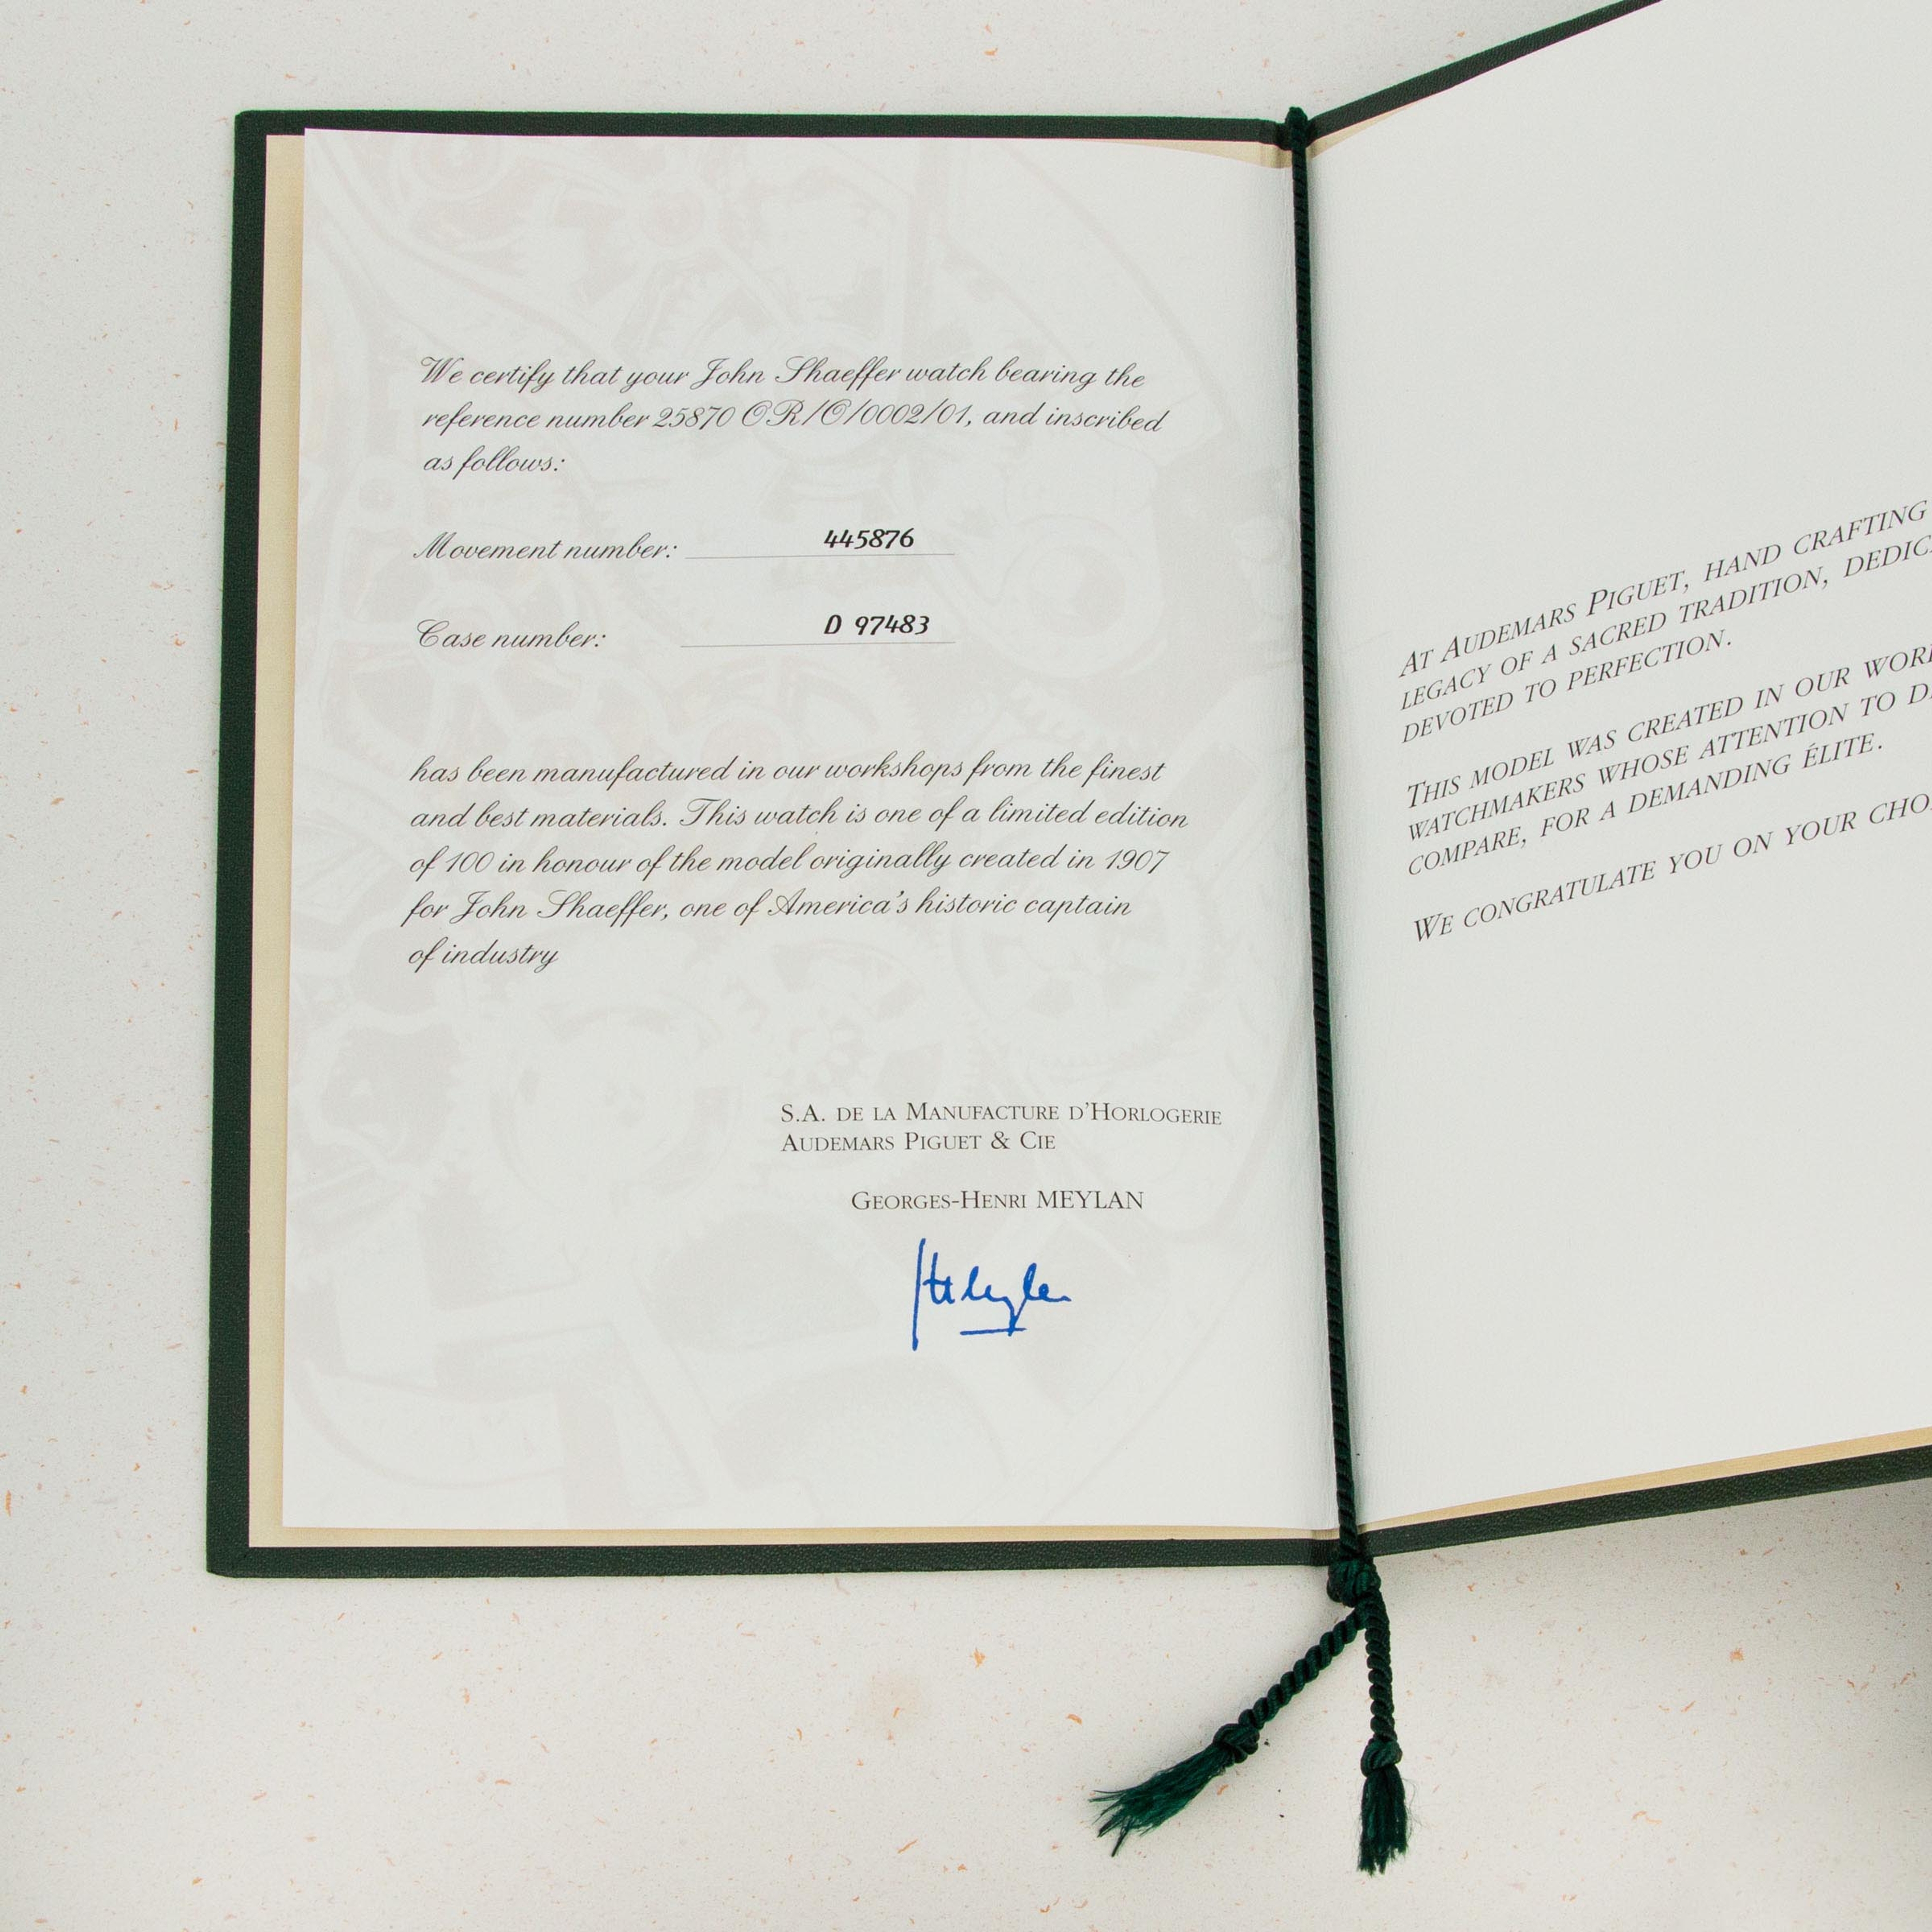 We certify that your John Shaeffer watch bearing the
reference number 25870 OR/O/0002/01, and inscribed
as follows:
Movement number: 445876
Case number: D 97483
has been manufactured in our workshops from the finest
and best materials. This watch is one of a limited edition
of 100 in honour of the model originally created in 1907
for John Shaeffer, one of America's historic captain
of industry
S.A. DE LA MANUFACTURE D'HORLOGERIE
AUDEMARS PIGUET & CIE
GEORGES-HENRI MEYLAN
AT AUDEMARS PIGUET, HAND CRAFTING
LEGACY OF A SACRED TRADITION,
DEVOTED TO PERFECTION.
THIS MODEL WAS CREATED IN OUR
WATCHMAKERS WHOSE ATTENTION TO
COMPARE, FOR A DEMANDING ÉLITE.
WE CONGRATULATE YOU ON YOUR